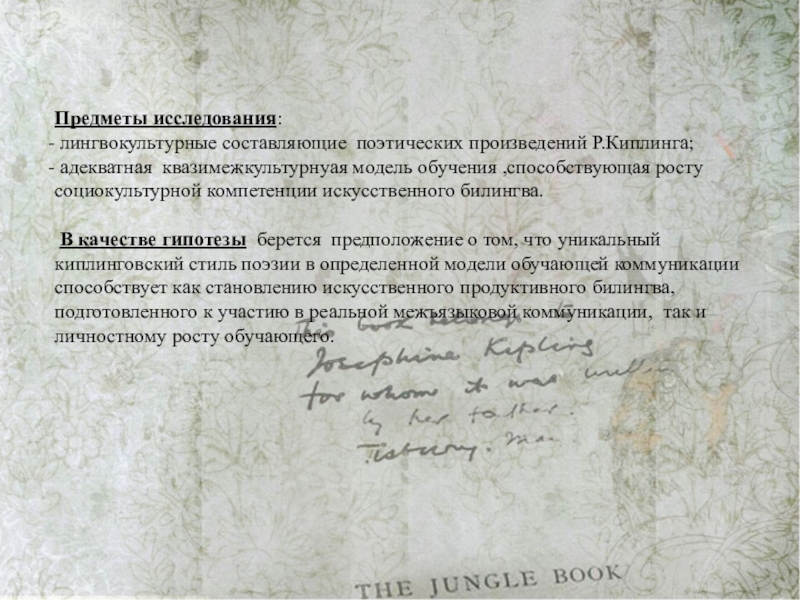 Предметы исследования:
- лингвокультурные составляющие поэтических произведений Р.Киплинга;
- адекватная квазимежкультурнуая модель обучения ,способствующая росту
социокультурной компетенции искусственного билингва.
В качестве гипотезы берется предположение о том, что уникальный
киплинговский стиль поэзии в определенной модели обучающей коммуникации
способствует как становлению искусственного продуктивного билингва,
подготовленного к участию в реальной межъязыковой коммуникации, так и
личностному росту обучающего.
This book belongs to
Josephine Kipling
for whom it was written
by her father.
Tisbury. May
THE JUNGLE BOOK